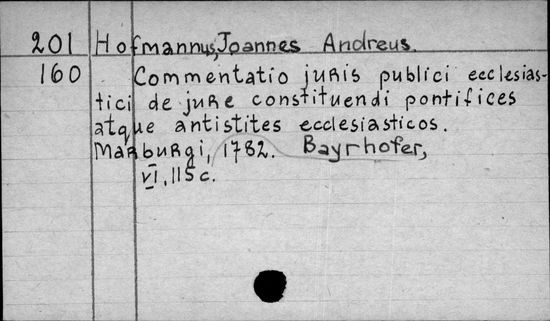 201 Hofmannus, Joannes Andreus.
160 Commentatio juris publici ecclesias-
tici de jure constituendi pontifices
atque antistites ecclesiasticos.
Marburgi, 1782. Bayrhofer,
VI, 115 c.